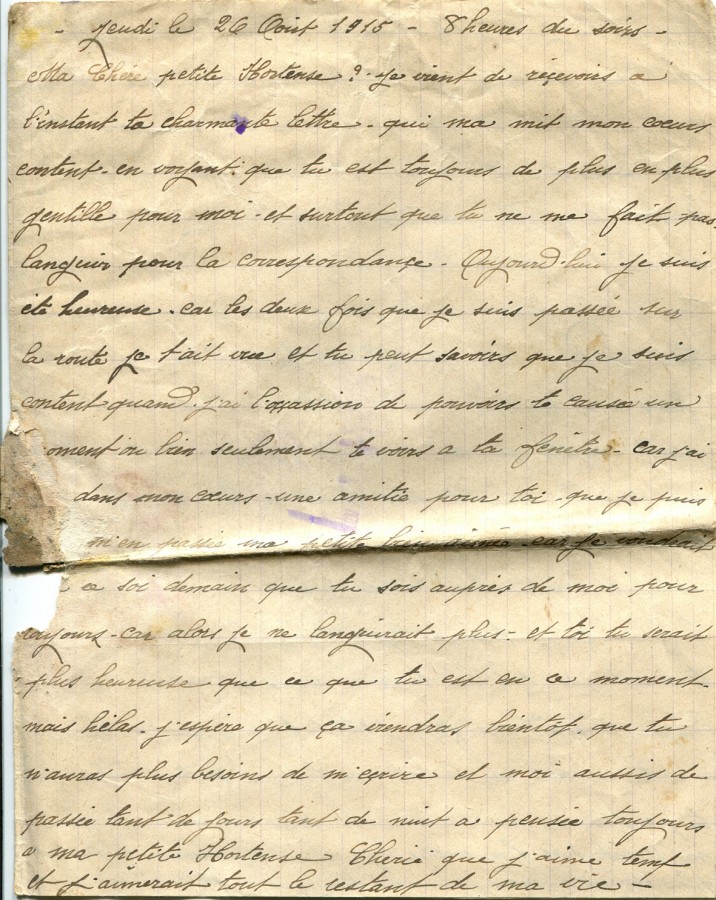 - Jeudi le 26 Août 1915 - 8 heures du soirs -
Ma Chère petite Hortense ? je vient de reçevoirs a
l'instant ta charmante lettre - qui ma mit mon cœurs
content - en voyant que tu est toujours de plus en plus
gentille pour moi - et surtout que tu ne me fait pas
languir pour la correspondançe - Aujourd-hui je suis
été heureuse - car les deux fois que je suis passée sur
la route je t'ait vue et tu peut savoirs que je suis
content quand j'ai l'occassion de pouvoirs te causée un
oment ou bien seulement te voirs a ta fenêtre - car j'ai
dans mon cœurs - une amitié pour toi - que je puis
m'en passée ma petite bien aimée - car je voudrait
ce soi demain que tu sois auprès de moi pour
oujours - car alors je ne languirait plus - et toi tu serait
plus heureuse que ce que tu est en ce moment -
mais hélas - j'espère que ça viendras bientôt - que tu
n'auras plus besoins de m'eçrire et moi aussis de
passée tant de jours tant de nuit a pensée toujours
a ma petite Hortense Chérie que j'aime temp
et j'aimerait tout le restant de ma vie -